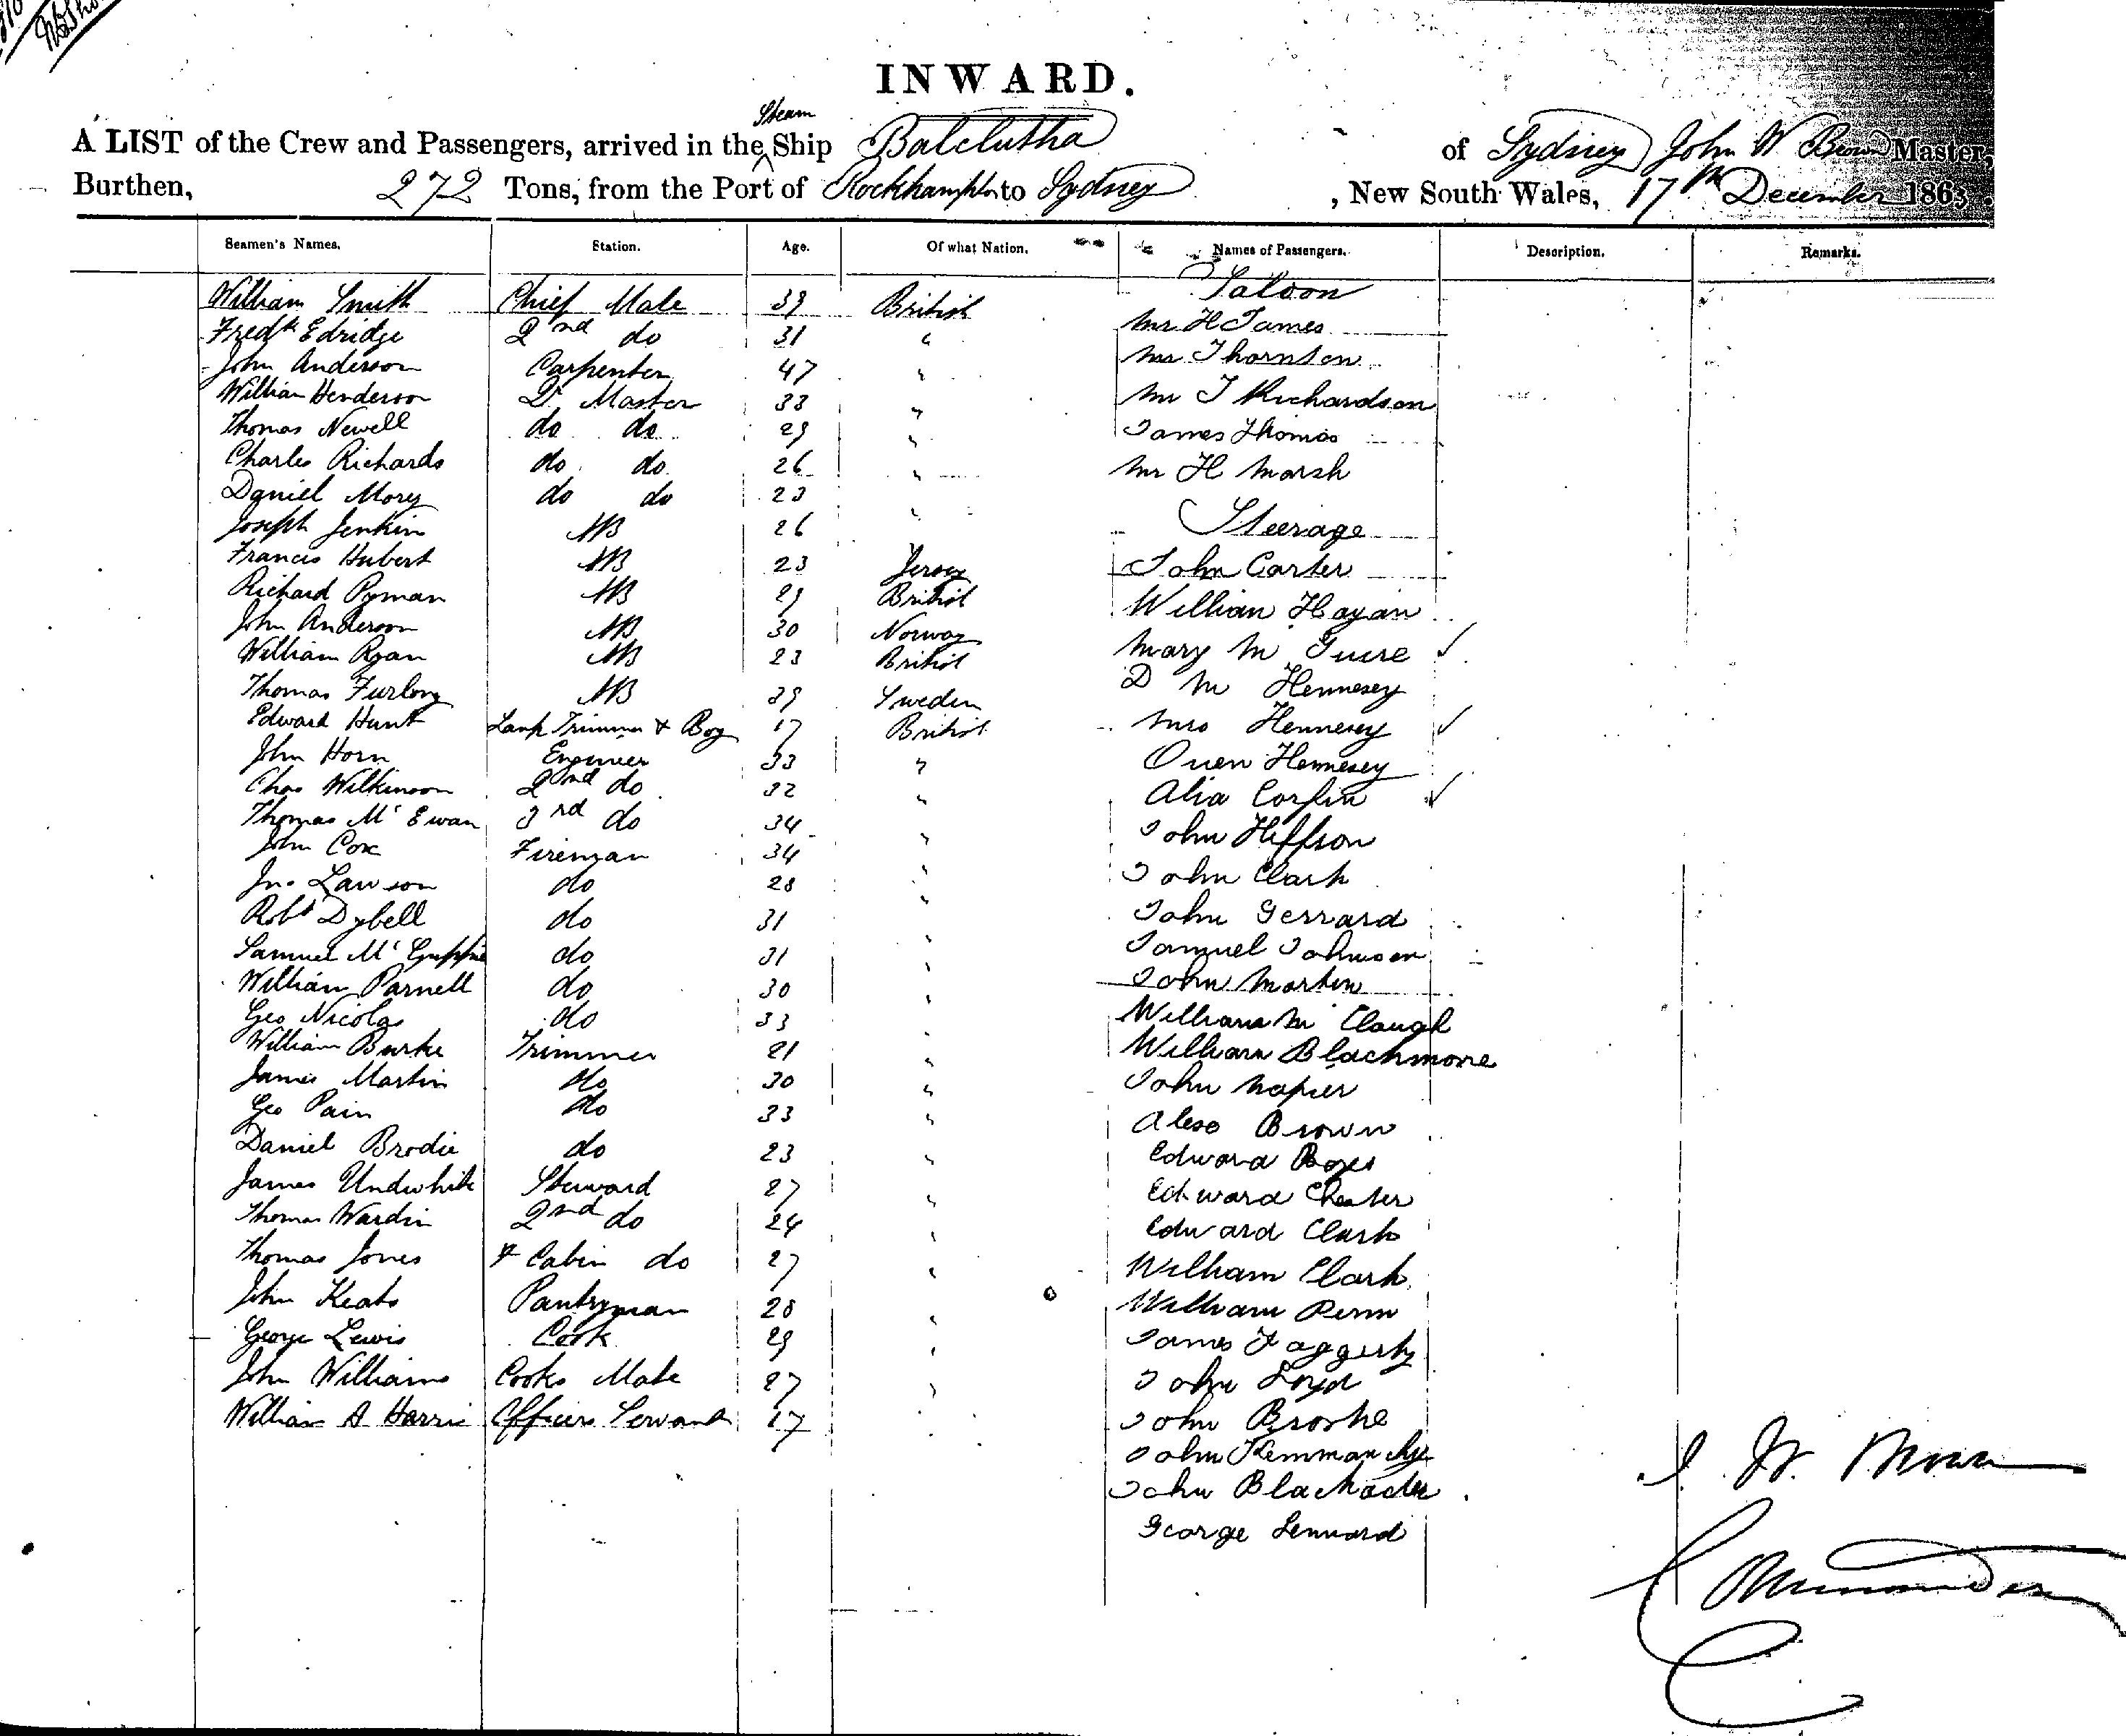 INWARD.
Steam
A LIST of the Crew and Passengers, arrived in the Ship Balclutha of Sydney John W Brown Master,
Burthen, 272 Tons, from the Port of Rockhampton to Sydney, New South Wales, 17th December 1863.
Seamen's Names. Station. Age. Of what Nation. Names of Passengers. Description. Remarks.
Saloon
William Smith Chief Mate 39 British Mr H James
Fredk Edridge 2nd do 31 " Mr Thornton
John Anderson Carpenter 47 " Mr J Richardson
William Henderson Qr Master 33 " James Thomas
Thomas Newell do do 29 " Mr H Marsh
Charles Richards do do 26 "
Daniel Morey do do 23 " Steerage
Joseph Jenkin AB 26 "
Francis Hubert AB 23 Jersey John Carter
Richard Pyman AB 29 British William Hagan
John Anderson AB 30 Norway Mary Mc Guire ✓
William Ryan AB 23 British D Mc Hennesey
Thomas Furlong AB 39 Sweden Mrs Hennesey ✓
Edward Hunt Lamp Trimmer & Boy 17 British Owen Hennesey
John Horn Engineer 33 " Alia ✓
Chas Wilkinson 2nd do 32 " John
Thomas McEwan 3rd do 34 " John Clark
John Cox Fireman 34 " John Gerrard
Jno Lawson do 28 " Samuel Johnson
Robt Dybell do 31 " John Martin
Samuel do 31 " William Mc Clough
William Parnell do 30 " William Blackmore
Geo Nicolas do 33 " John Napier
William Burke Trimmer 21 " Brown
James Martin do 30 " Edward
Geo Pain do 33 " Edward Chester
Daniel Brodie do 23 " Edward Clark
James Underhill Steward 27 " William Clark
Thomas Wardin 2nd do 24 " William Penn
Thomas Jones & Cabin do 27 " James Faggerty
John Keats Pantryman 28 " John Loyd
George Lewis Cook 29 " John Brooke
John Williams Cooks Mate 27 " John
William A Harris Officers Servant 17 " John
George Lennard
J. W. Brown
Commander